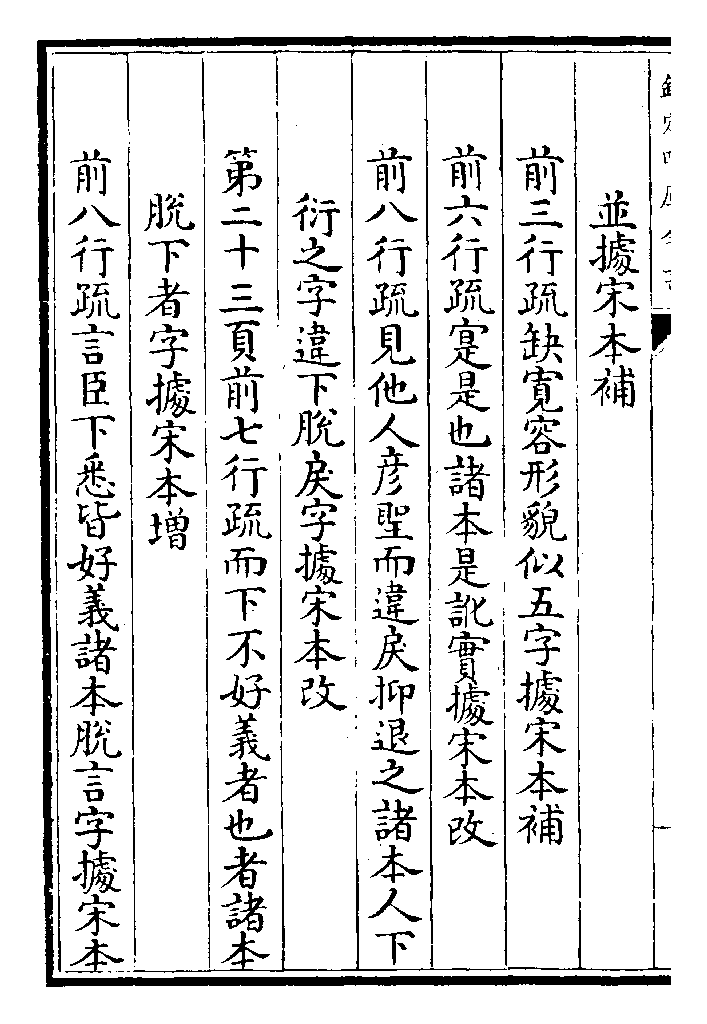 欽定四庫全書
並據宋本補
前三行疏缺寛容形貌似五字據宋本補
前六行疏寔是也諸本是訛實據宋本改
前八行疏見他人彦聖而違戾抑退之諸本人下
衍之字違下脫戾字據宋本改
第二十三頁前七行疏而下不好義者也者諸本
脫下者字據宋本增
前八行疏言臣下悉皆好義諸本脫言字據宋本